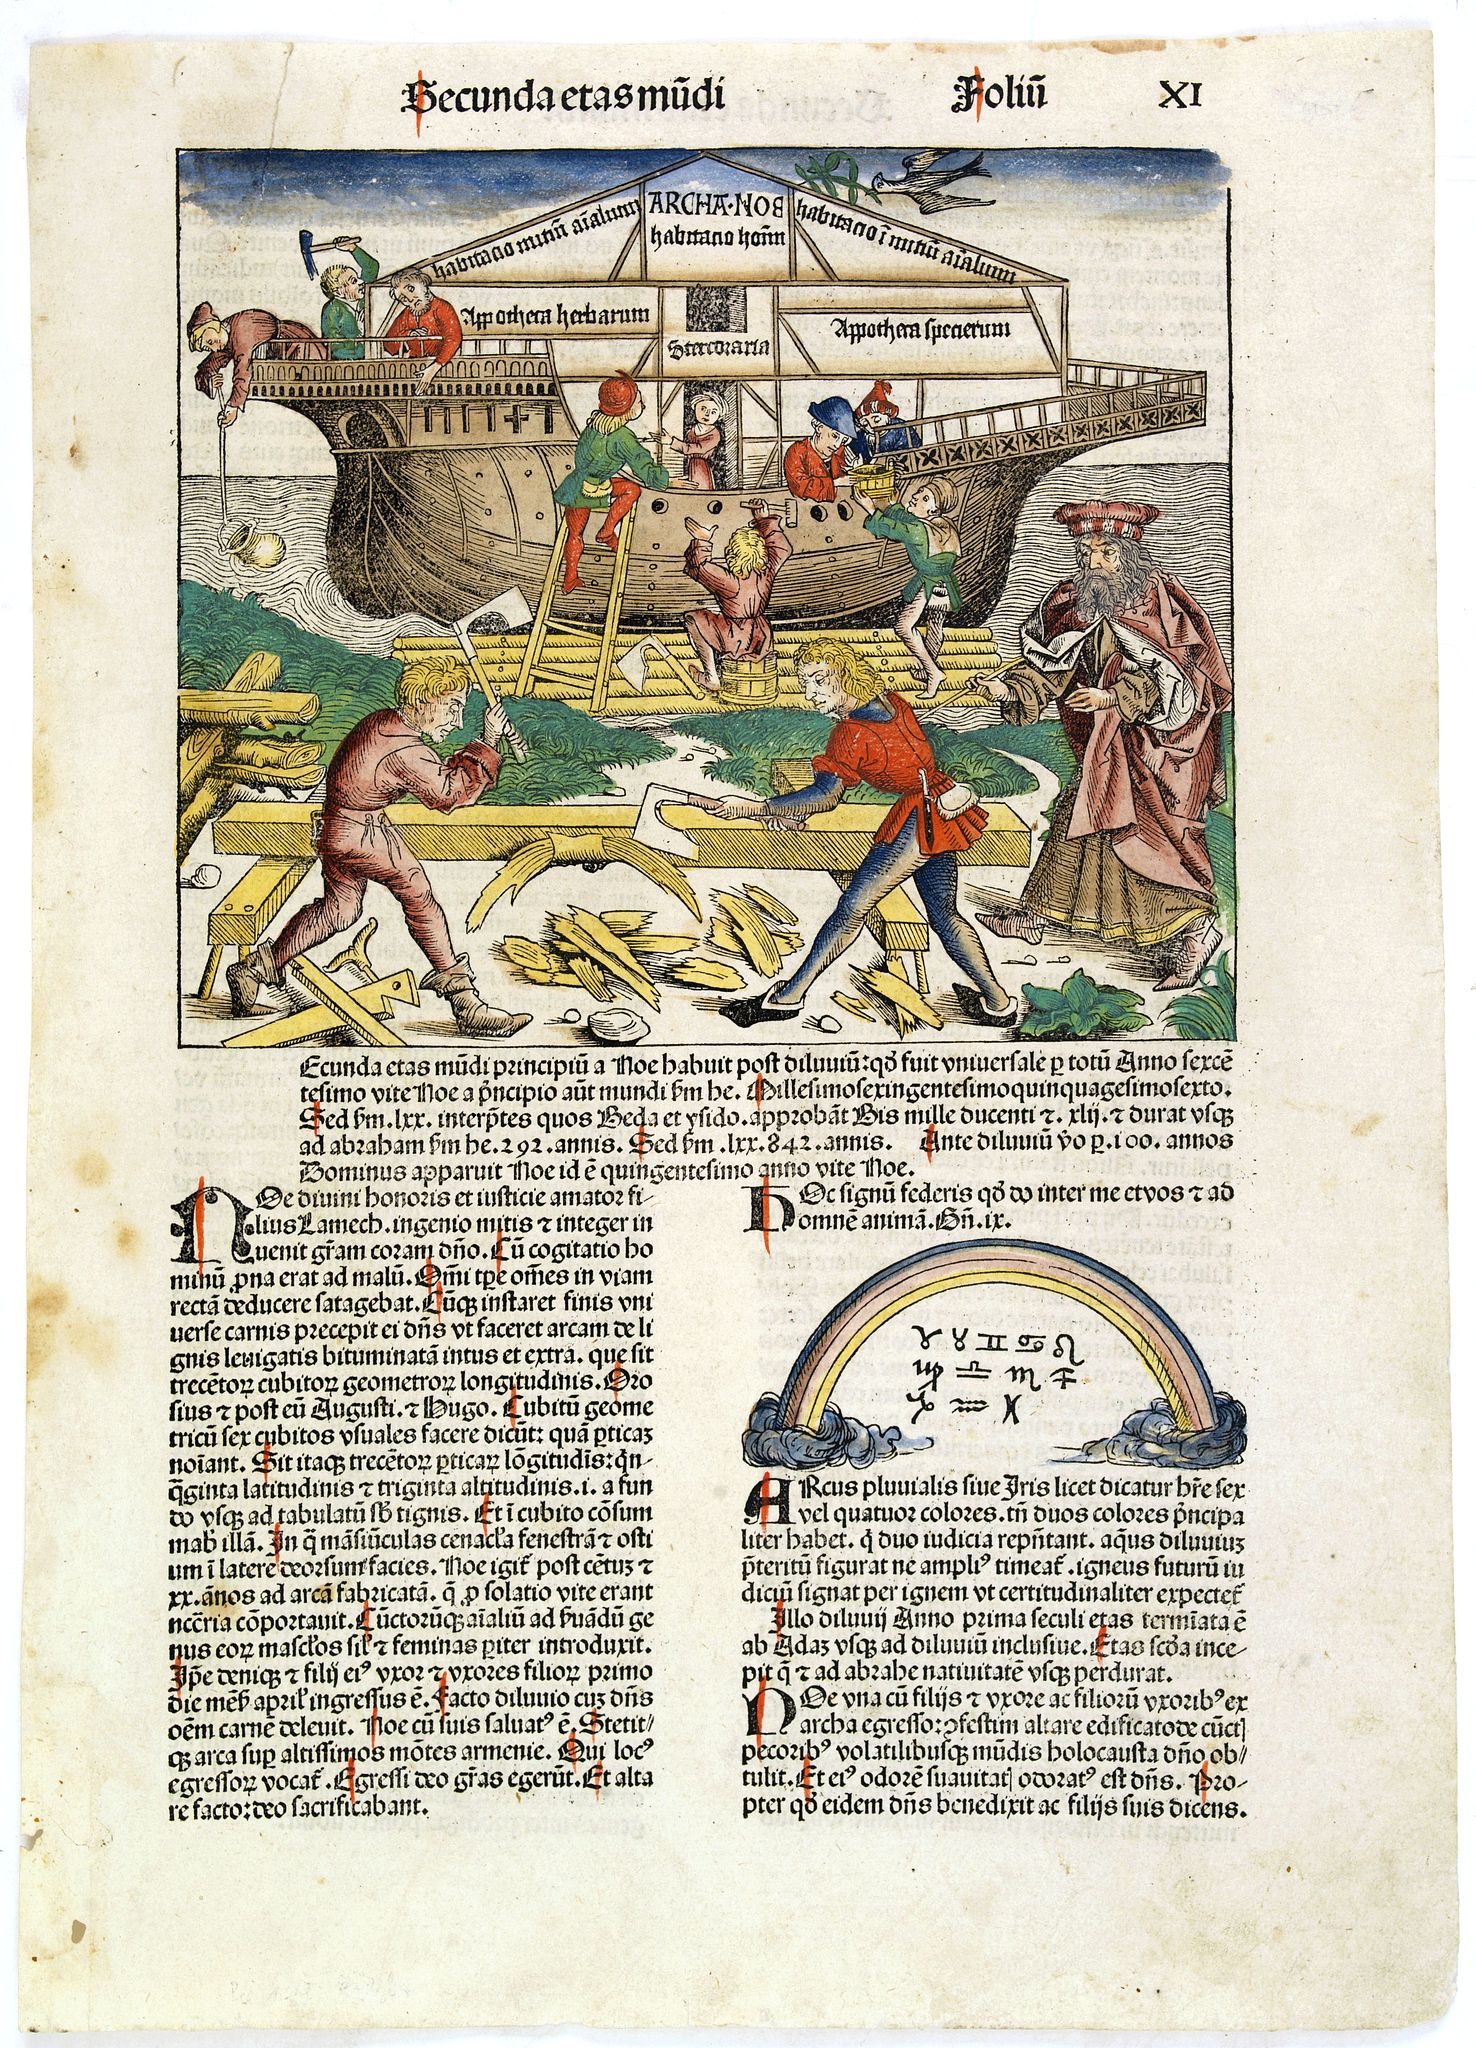 Secunda etas mūdi Foliū XI
ARCHA·NOE
habitacio mitiū aīalium
habitacio hoīm
habitacio īmitiū aīalium
Appotheca herbarum
Stercoraria
Appotheca specierum
Ecunda etas mūdi principiū a Noe habuit post diluuiū: qd̄ fuit vniuersale ꝑ totū Anno sexcē
tesimo vite Noe a p̄ncipio aūt mundi ẜm he. Millesimosexingentesimoquinquagesimosexto.
Sed ẜm .lxx. interp̄tes quos Beda et ysido. approbāt Bis mille ducenti ⁊ .xlij. ⁊ durat vsqꝫ
ad abraham ẜm he. 292. annis. Sed ẜm .lxx. 842. annis. Ante diluuiū v̄o ꝑ .100. annos
Dominus apparuit Noe id ē quingentesimo anno vite Noe.
NOe diuini honoris et iusticie amator fi-
lius Lamech. ingenio mitis ⁊ integer in
uenit gr̄am coram dn̄o. Cū cogitatio ho
minū ꝓna erat ad malū. Om̄i tꝑe om̄es in viam
rectā deducere satagebat. Cūqꝫ instaret finis vni
uerse carnis precepit ei dn̄s vt faceret arcam de li
gnis leuigatis bituminatā intus et extra. que sit
trecētoꝝ cubitoꝝ geometroꝝ longitudinis. Oro
sius ⁊ post eū Augusti. ⁊ Hugo. Cubitū geome
tricū sex cubitos vsuales facere dicūt: quā ꝑticaꝫ
noīant. Sit itaqꝫ trecētoꝝ ꝑticaꝝ lōgitudīs: qn̄-
q̄ginta latitudinis ⁊ triginta altitudinis. i. a fun
do vsqꝫ ad tabulatū sb̄ tignis. Et ī cubito cōsum
mabꝭ illā. In q̄ māsiūculas cenac̄la fenestrā ⁊ osti
um ī latere deorsum facies. Noe igiť post cētuꝫ ⁊
xx. ānos ad arcā fabricatā. q̄ ꝓ solatio vite erant
nc̄cria cōportauit. Cūctorūqꝫ aīaliū ad ẜuandū ge
nus eoꝝ masc̄los sil̄ ⁊ feminas ꝑiter introduxit.
Ip̄e deniqꝫ ⁊ filij eiꝰ vxor ⁊ vxores filioꝝ primo
die mēẜ april̄ ingressus ē. Facto diluuio cuꝫ dn̄s
oēm carnē deleuit. Noe cū suis saluatꝰ ē. Stetit-
qꝫ arca suꝑ altissimos mōtes armenie. Qui locꝰ
egressoꝝ vocať. Egressi deo gr̄as egerūt. Et alta
re facto: deo sacrificabant.
HOc signū federis qd̄ do inter me et vos ⁊ ad
omnē animā. Gn̄. ix.
♈ ♉ ♊ ♋ ♌
♍ ♎ ♏ ♐
♑ ♒ ♓
ARcus pluuialis siue Iris licet dicatur hr̄e sex
vel quatuor colores. tn̄ duos colores p̄ncipa
liter habet. q̄ duo iudicia rep̄ntant. aqueꝰ diluuiuꝫ
p̄teritū figurat ne ampliꝰ timeať. igneus futurū iu
diciū signat per ignem vt certitudinaliter expecteť
Illo diluuij Anno prima seculi etas termīata ē
ab Adaꝫ vsqꝫ ad diluuiū inclusiue. Etas scd̄a ince
pit q̄ ⁊ ad abrahe natiuitatē vsqꝫ perdurat.
NOe vna cū filijs ⁊ vxore ac filiorū vxoribꝰ ex
archa egressor: ꝓfestim altare edificato de cūctꝭ
pecoribꝰ volatilibusqꝫ mūdis holocausta dn̄o ob-
tulit. Et eiꝰ odorē suauitatꝭ odoratꝰ est dn̄s. Pro-
pter qd̄ eidem dn̄s benedixit ac filijs suis dicens.